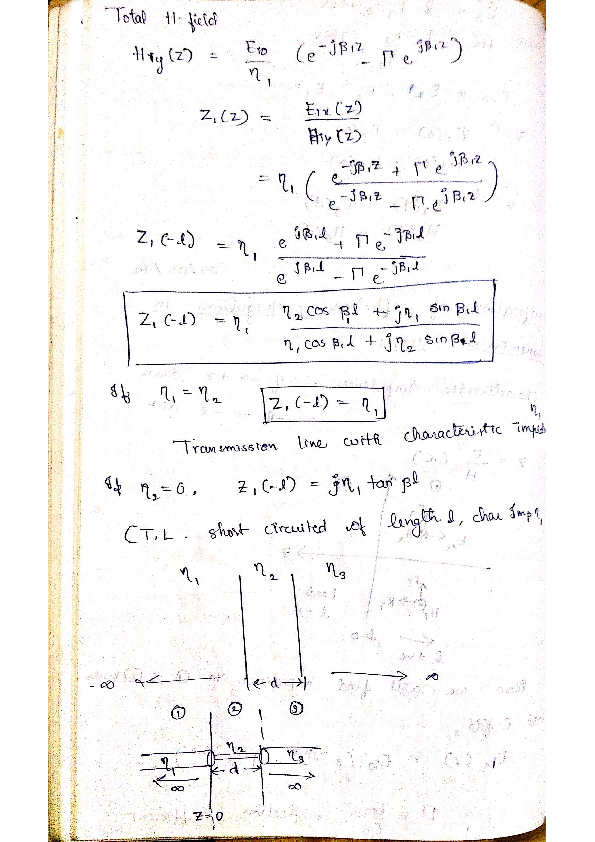 Total H-field
H1y(z) = E10/η1 (e^-jβ1z - Γ e^jβ1z)
Z1(z) = E1x(z)/H1y(z)
= η1 ( (e^-jβ1z + Γ e^jβ1z) / (e^-jβ1z - Γ e^jβ1z) )
Z1(-l) = η1 (e^jβ1l + Γ e^-jβ1l) / (e^jβ1l - Γ e^-jβ1l)
Z1(-l) = η1 (η2 cos β1l + jη1 sin β1l) / (η1 cos β1l + jη2 sin β1l)
If η1 = η2 Z1(-l) = η1
η1
Transmission line with characteristic imped
If η2 = 0, Z1(-l) = jη1 tan βl
(T.L. short circuited of length l, char Imp η1
η1 η2 η3
-∞ d ∞
① ② ③
η1 η2 η3
∞ d ∞
z=0